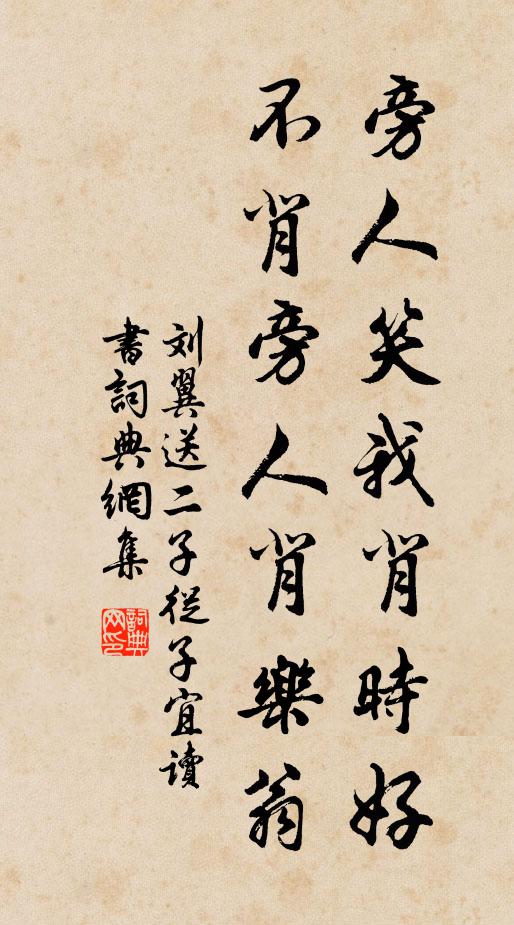 旁人笑我背時好
不背旁人背樂翁
刘翼送二子從子宜讀
書詞典網集
詞典网印